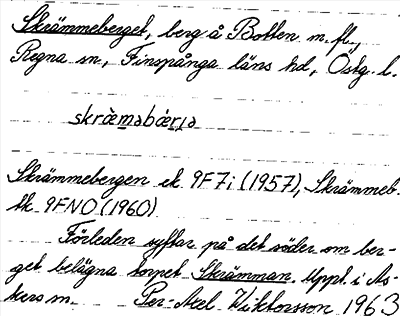 Skrämmeberget, berg å Botten m. fl.,
Regna sn, Finspånga läns hd, Östg. l.
skræ̀mabær̀ja
Skrämmebergen ek 9F7i (1957), Skrämmeb.
tk 9FNO (1960)
Förleden syftar på det söder om ber-
get belägna torpet Skrämman. Uppt. i As-
kers sn. Per-Axel Wiktorsson 1963